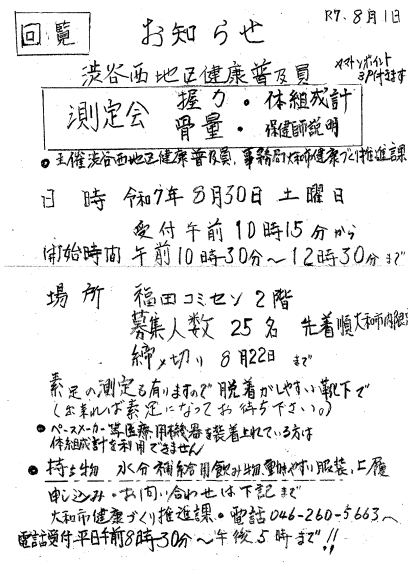 R7.8月1日
回覧
お知らせ
渋谷西地区健康普及員
ヤマトンポイント
3P付きます
測定会 握力・体組成計
骨量・保健師説明
●主催渋谷西地区健康普及員、事務局大和市健康づくり推進課
日時 令和7年8月30日土曜日
受付午前10時15分から
開始時間 午前10時30分〜12時30分まで
場所 福田コミセン2階
募集人数 25名 先着順大和市内限定
締メ切り 8月22日まで
素足の測定も有りますので脱着がしやすい靴下で
(出来れば素足になってお待ち下さい。)
●ペースメーカー等医療用機器を装着されている方は
体組成計を利用できません
●持ち物 水分補給用飲み物、動きやすい服装、上履
申し込み・お問い合わせは下記まで
大和市健康づくり推進課・電話046-260-5663へ
電話受付平日午前8時30分〜午後5時まで!!